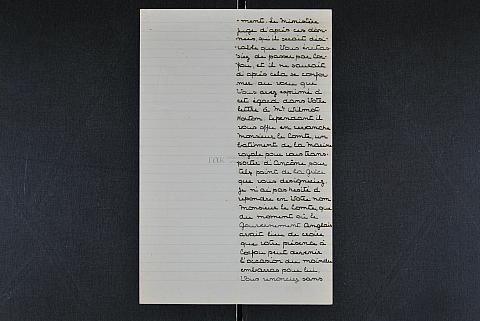 -ment, le Ministère
juge d'après ces don-
nées, qu'il serait dési-
-rable que Vous évitas-
siez de passer par Cor-
fou, et il ne saurait
d'après cela se confor-
mer au vœu que
Vous avez exprimé à
cet égard dans Votre
lettre à Mr Wilmot
Horton. Cependant il
vous offre en revanche
Monsieur le Comte, un
bâtiment de la Marine
royale pour vous trans-
porter d'Ancône pour
tel point de la Grèce
que vous désigneriez.
Je n'ai pas hésité à
répondre en Votre nom
Monsieur le Comte, que
du moment où le
Gouvernement Anglais
avait lieu de croire
que votre présence à
Corfou peut devenir
l'occasion du moindre
embarras pour lui,
Vous renonciez sans